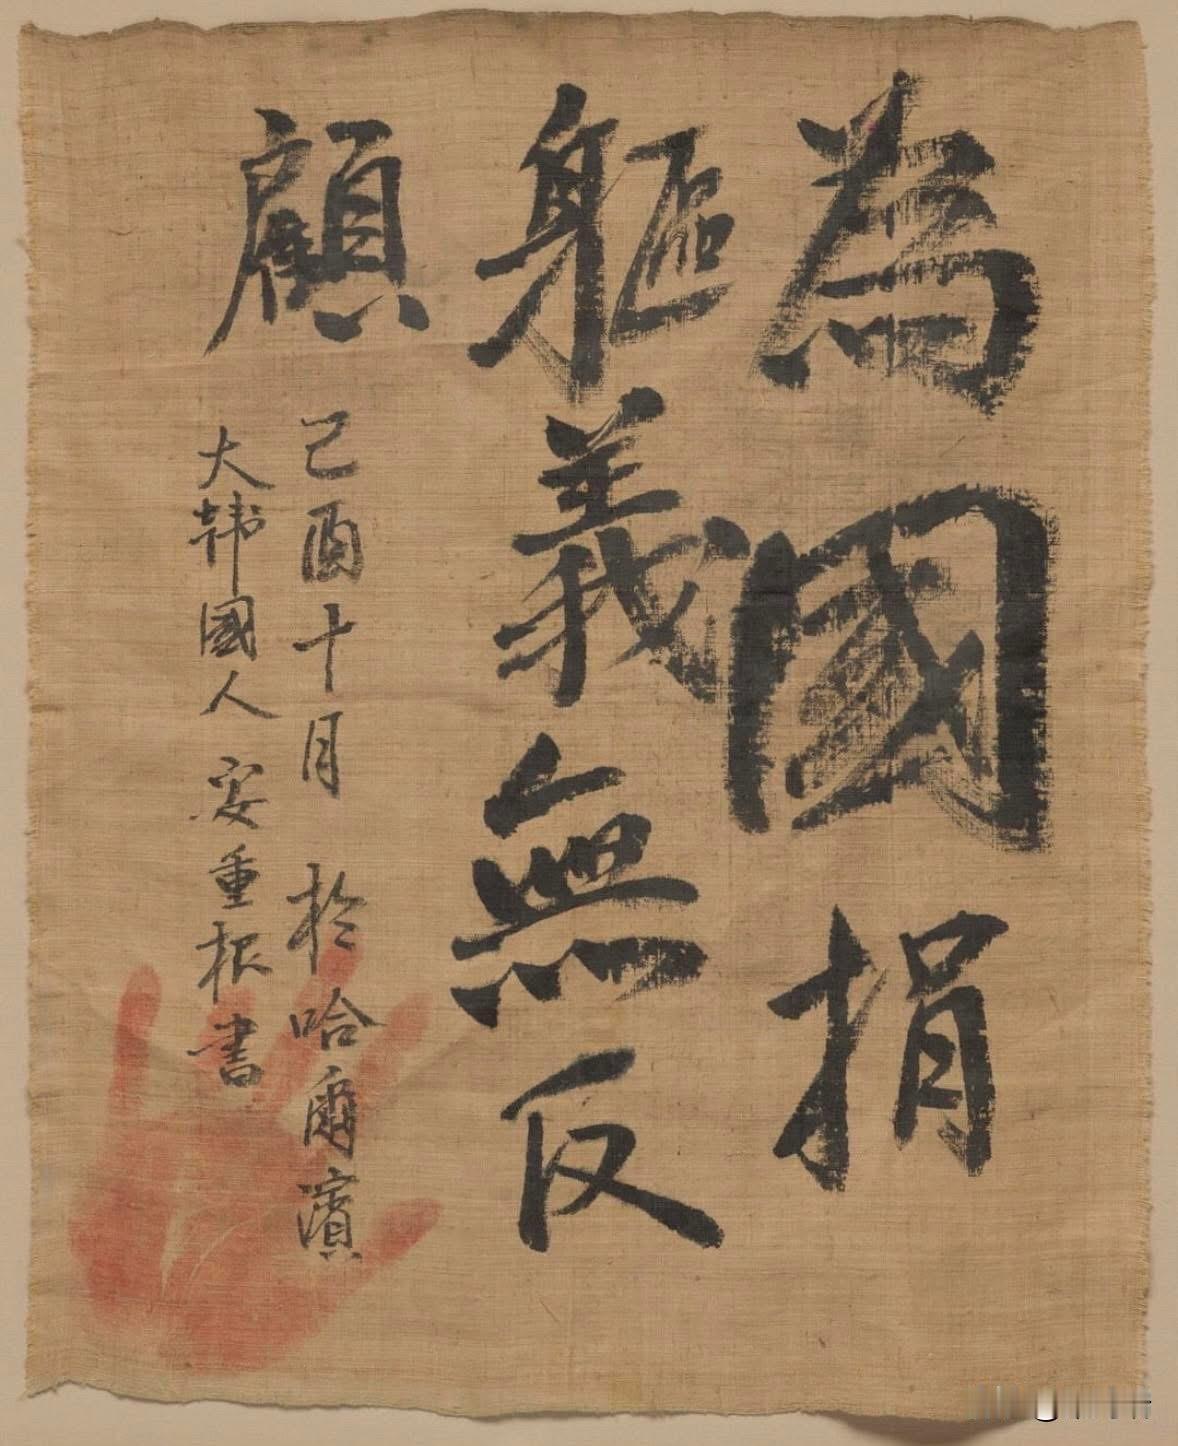 為國捐
軀義無反
顧
己酉十月 於哈爾濱
大韩國人 安重根書